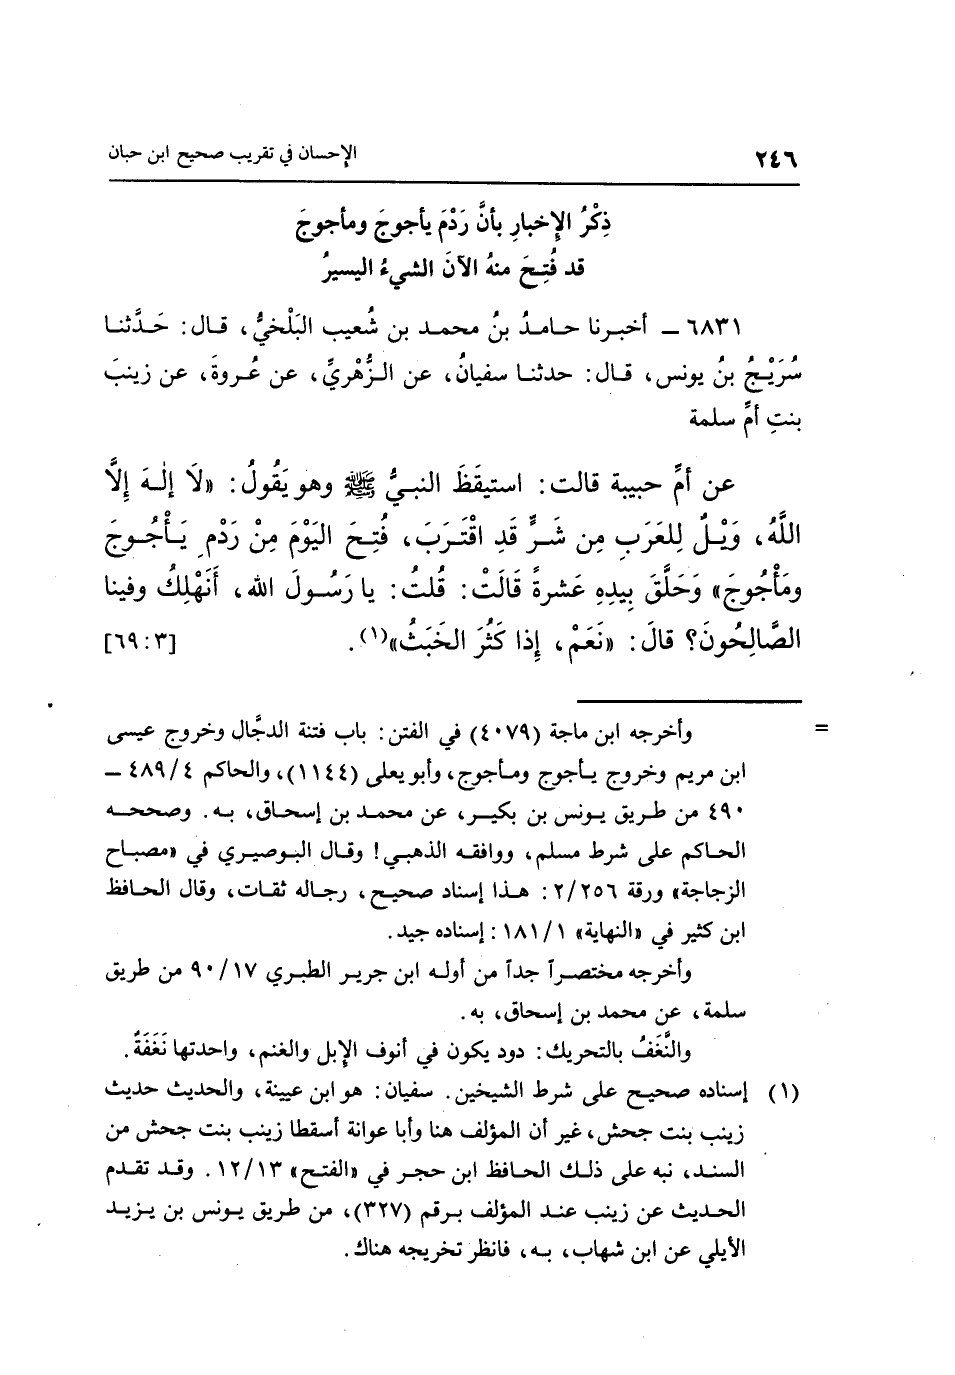 ٢٤٦ الإحسان في تقريب صحيح ابن حبان
ذِكْرُ الإِخبارِ بأنَّ رَدْمَ يأجوجَ ومأجوجَ
قد فُتِحَ منهُ الآنَ الشيءُ اليسيرُ
٦٨٣١ ـ أخبرنا حامدُ بنُ محمد بن شُعيب البَلْخيُّ، قال: حَدَّثنا
سُرَيْجُ بنُ يونس، قال: حدثنا سفيانُ، عن الزُّهريِّ، عن عُروةَ، عن زينبَ
بنتِ أمِّ سلمة
عن أمِّ حبيبة قالت: استيقَظَ النبيُّ ﷺ وهو يَقُولُ: «لَا إلٰهَ إِلَّا
اللَّهُ، وَيْلٌ لِلعَرَبِ مِن شَرٍّ قَدِ اقْتَرَبَ، فُتِحَ اليَوْمَ مِنْ رَدْمِ يَأْجُوجَ
ومَأْجُوجَ» وَحَلَّقَ بِيدِهِ عَشرةً قَالَتْ: قُلتُ: يا رَسُولَ الله، أَنَهْلِكُ وفينا
الصَّالِحُونَ؟ قالَ: «نَعَمْ، إِذا كَثُرَ الخَبَثُ»(١). [٣: ٦٩]
= وأخرجه ابن ماجة (٤٠٧٩) في الفتن: باب فتنة الدجَّال وخروج عيسى
ابن مريم وخروج يأجوج ومأجوج، وأبو يعلى (١١٤٤)، والحاكم ٤/٤٨٩ ـ
٤٩٠ من طريق يونس بن بكير، عن محمد بن إسحاق، به. وصححه
الحاكم على شرط مسلم، ووافقه الذهبي! وقال البوصيري في «مصباح
الزجاجة» ورقة ٢/٢٥٦: هذا إسناد صحيح، رجاله ثقات، وقال الحافظ
ابن كثير في «النهاية» ١/١٨١: إسناده جيد.
وأخرجه مختصراً جداً من أوله ابن جرير الطبري ١٧/٩٠ من طريق
سلمة، عن محمد بن إسحاق، به.
والنَّغَفُ بالتحريك: دود يكون في أنوف الإبل والغنم، واحدتها نَغَفَةٌ.
(١) إسناده صحيح على شرط الشيخين. سفيان: هو ابن عيينة، والحديث حديث
زينب بنت جحش، غير أن المؤلف هنا وأبا عوانة أسقطا زينب بنت جحش من
السند، نبه على ذلك الحافظ ابن حجر في «الفتح» ١٢/١٣. وقد تقدم
الحديث عن زينب عند المؤلف برقم (٣٢٧)، من طريق يونس بن يزيد
الأيلي عن ابن شهاب، به، فانظر تخريجه هناك.